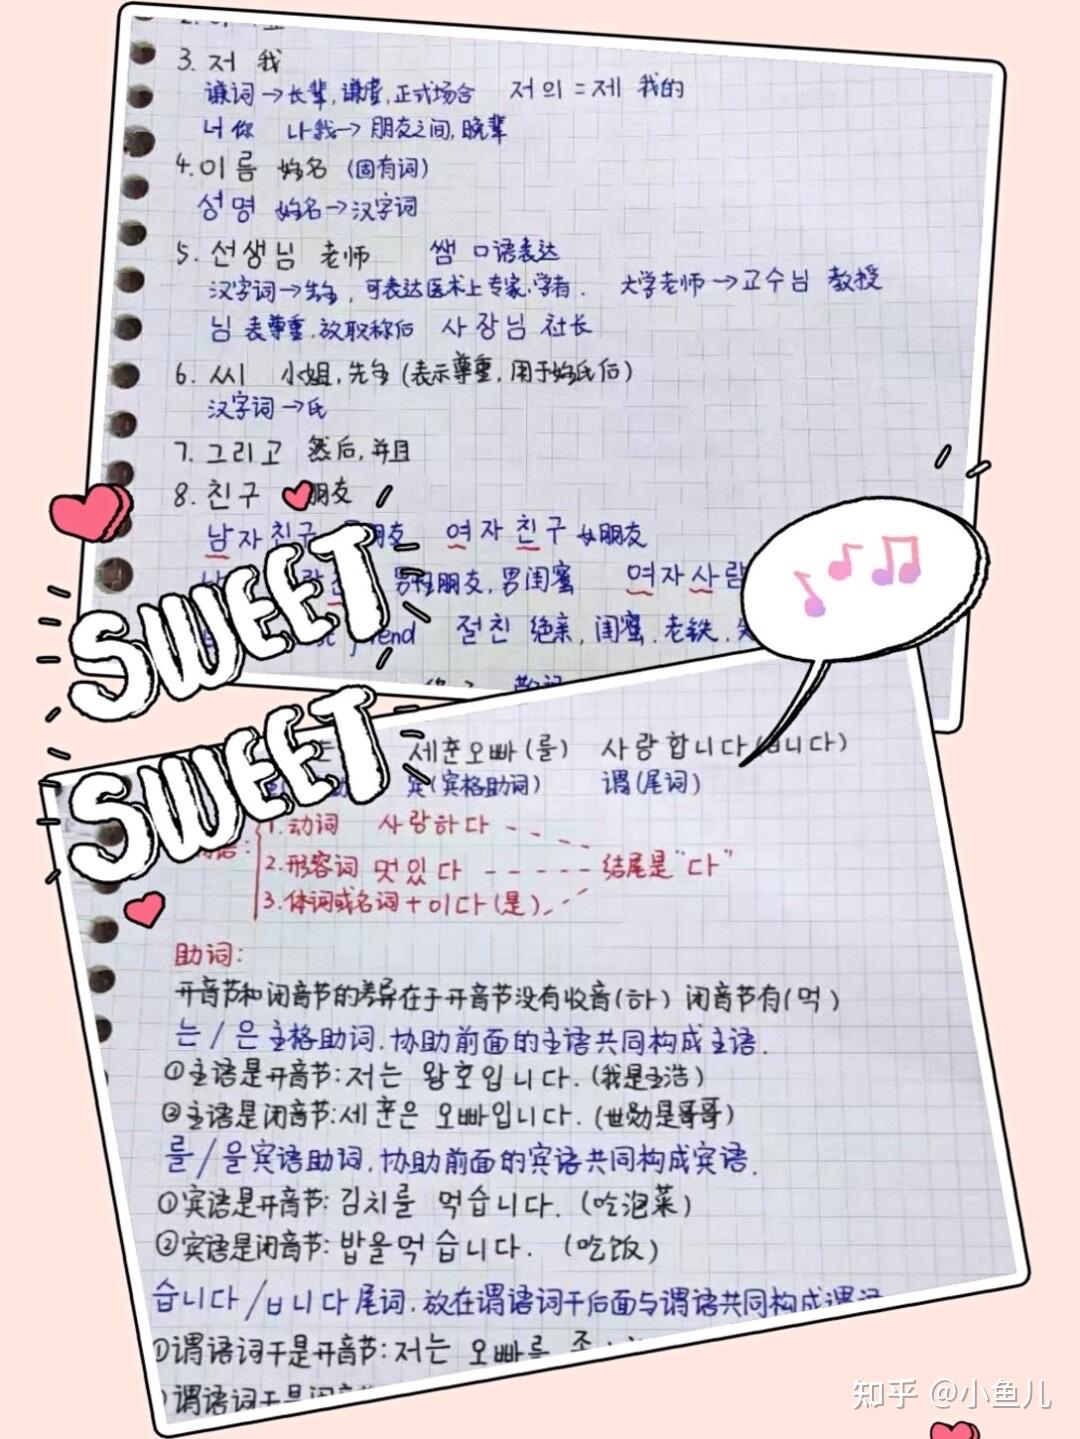 3. 저 我
谦词→长辈,谦虚,正式场合 저의=제 我的
너 你 나 我→朋友之间,晚辈
4. 이름 姓名 (固有词)
성명 姓名→汉字词
5. 선생님 老师 쌤 口语表达
汉字词→先生, 可表达医术上专家.学者. 大学老师→교수님 教授
님 表尊重,放职称后 사장님 社长
6. 씨 小姐,先生(表示尊重,用于姓氏后)
汉字词→氏
7. 그리고 然后,并且
8. 친구 朋友
남자친구 朋友 여자친구 女朋友
男性朋友,男闺蜜 여자사람
friend 절친 绝亲,闺蜜.老铁.
세훈오빠(를) 사랑합니다(ㅂ니다)
宾(宾格助词) 谓(尾词)
1.动词 사랑하다
2.形容词 멋있다 结尾是"다"
3.体词或名词+이다(是)
助词:
开音节和闭音节的差异在于开音节没有收音(하) 闭音节有(먹)
는/은 主格助词.协助前面的主语共同构成主语.
①主语是开音节:저는 왕호입니다.(我是王浩)
②主语是闭音节:세훈은 오빠입니다.(世勋是哥哥)
를/을宾语助词.协助前面的宾语共同构成宾语.
①宾语是开音节:김치를 먹습니다.(吃泡菜)
②宾语是闭音节:밥을먹습니다. (吃饭)
습니다/ㅂ니다尾词.放在谓语词干后面与谓语共同构成谓语
①谓语词干是开音节:저는 오빠를
谓语词干是闭音
SWEET
SWEET
知乎 @小鱼儿